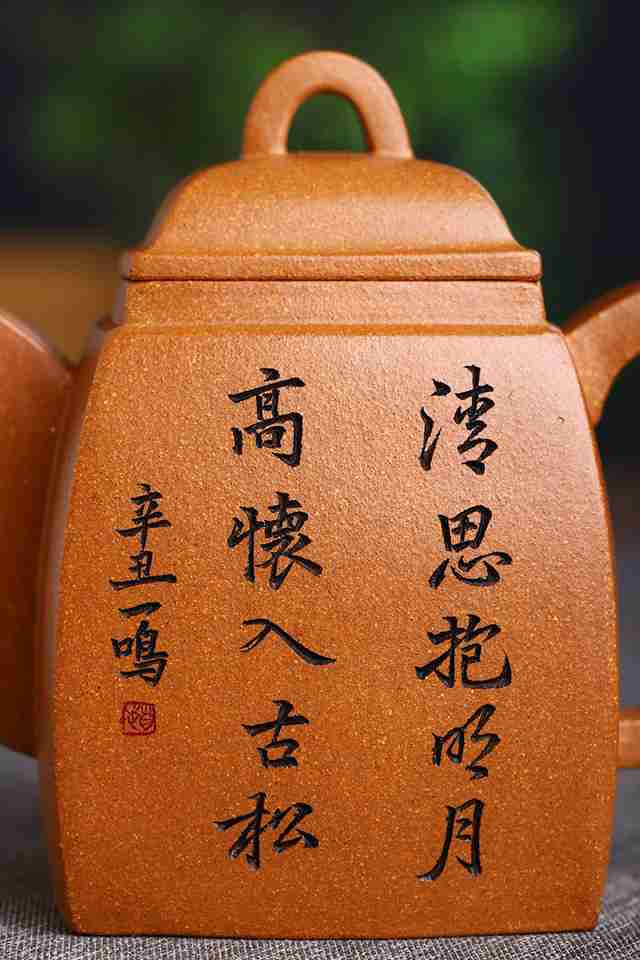 清思抱明月
高懷入古松
辛丑一鳴